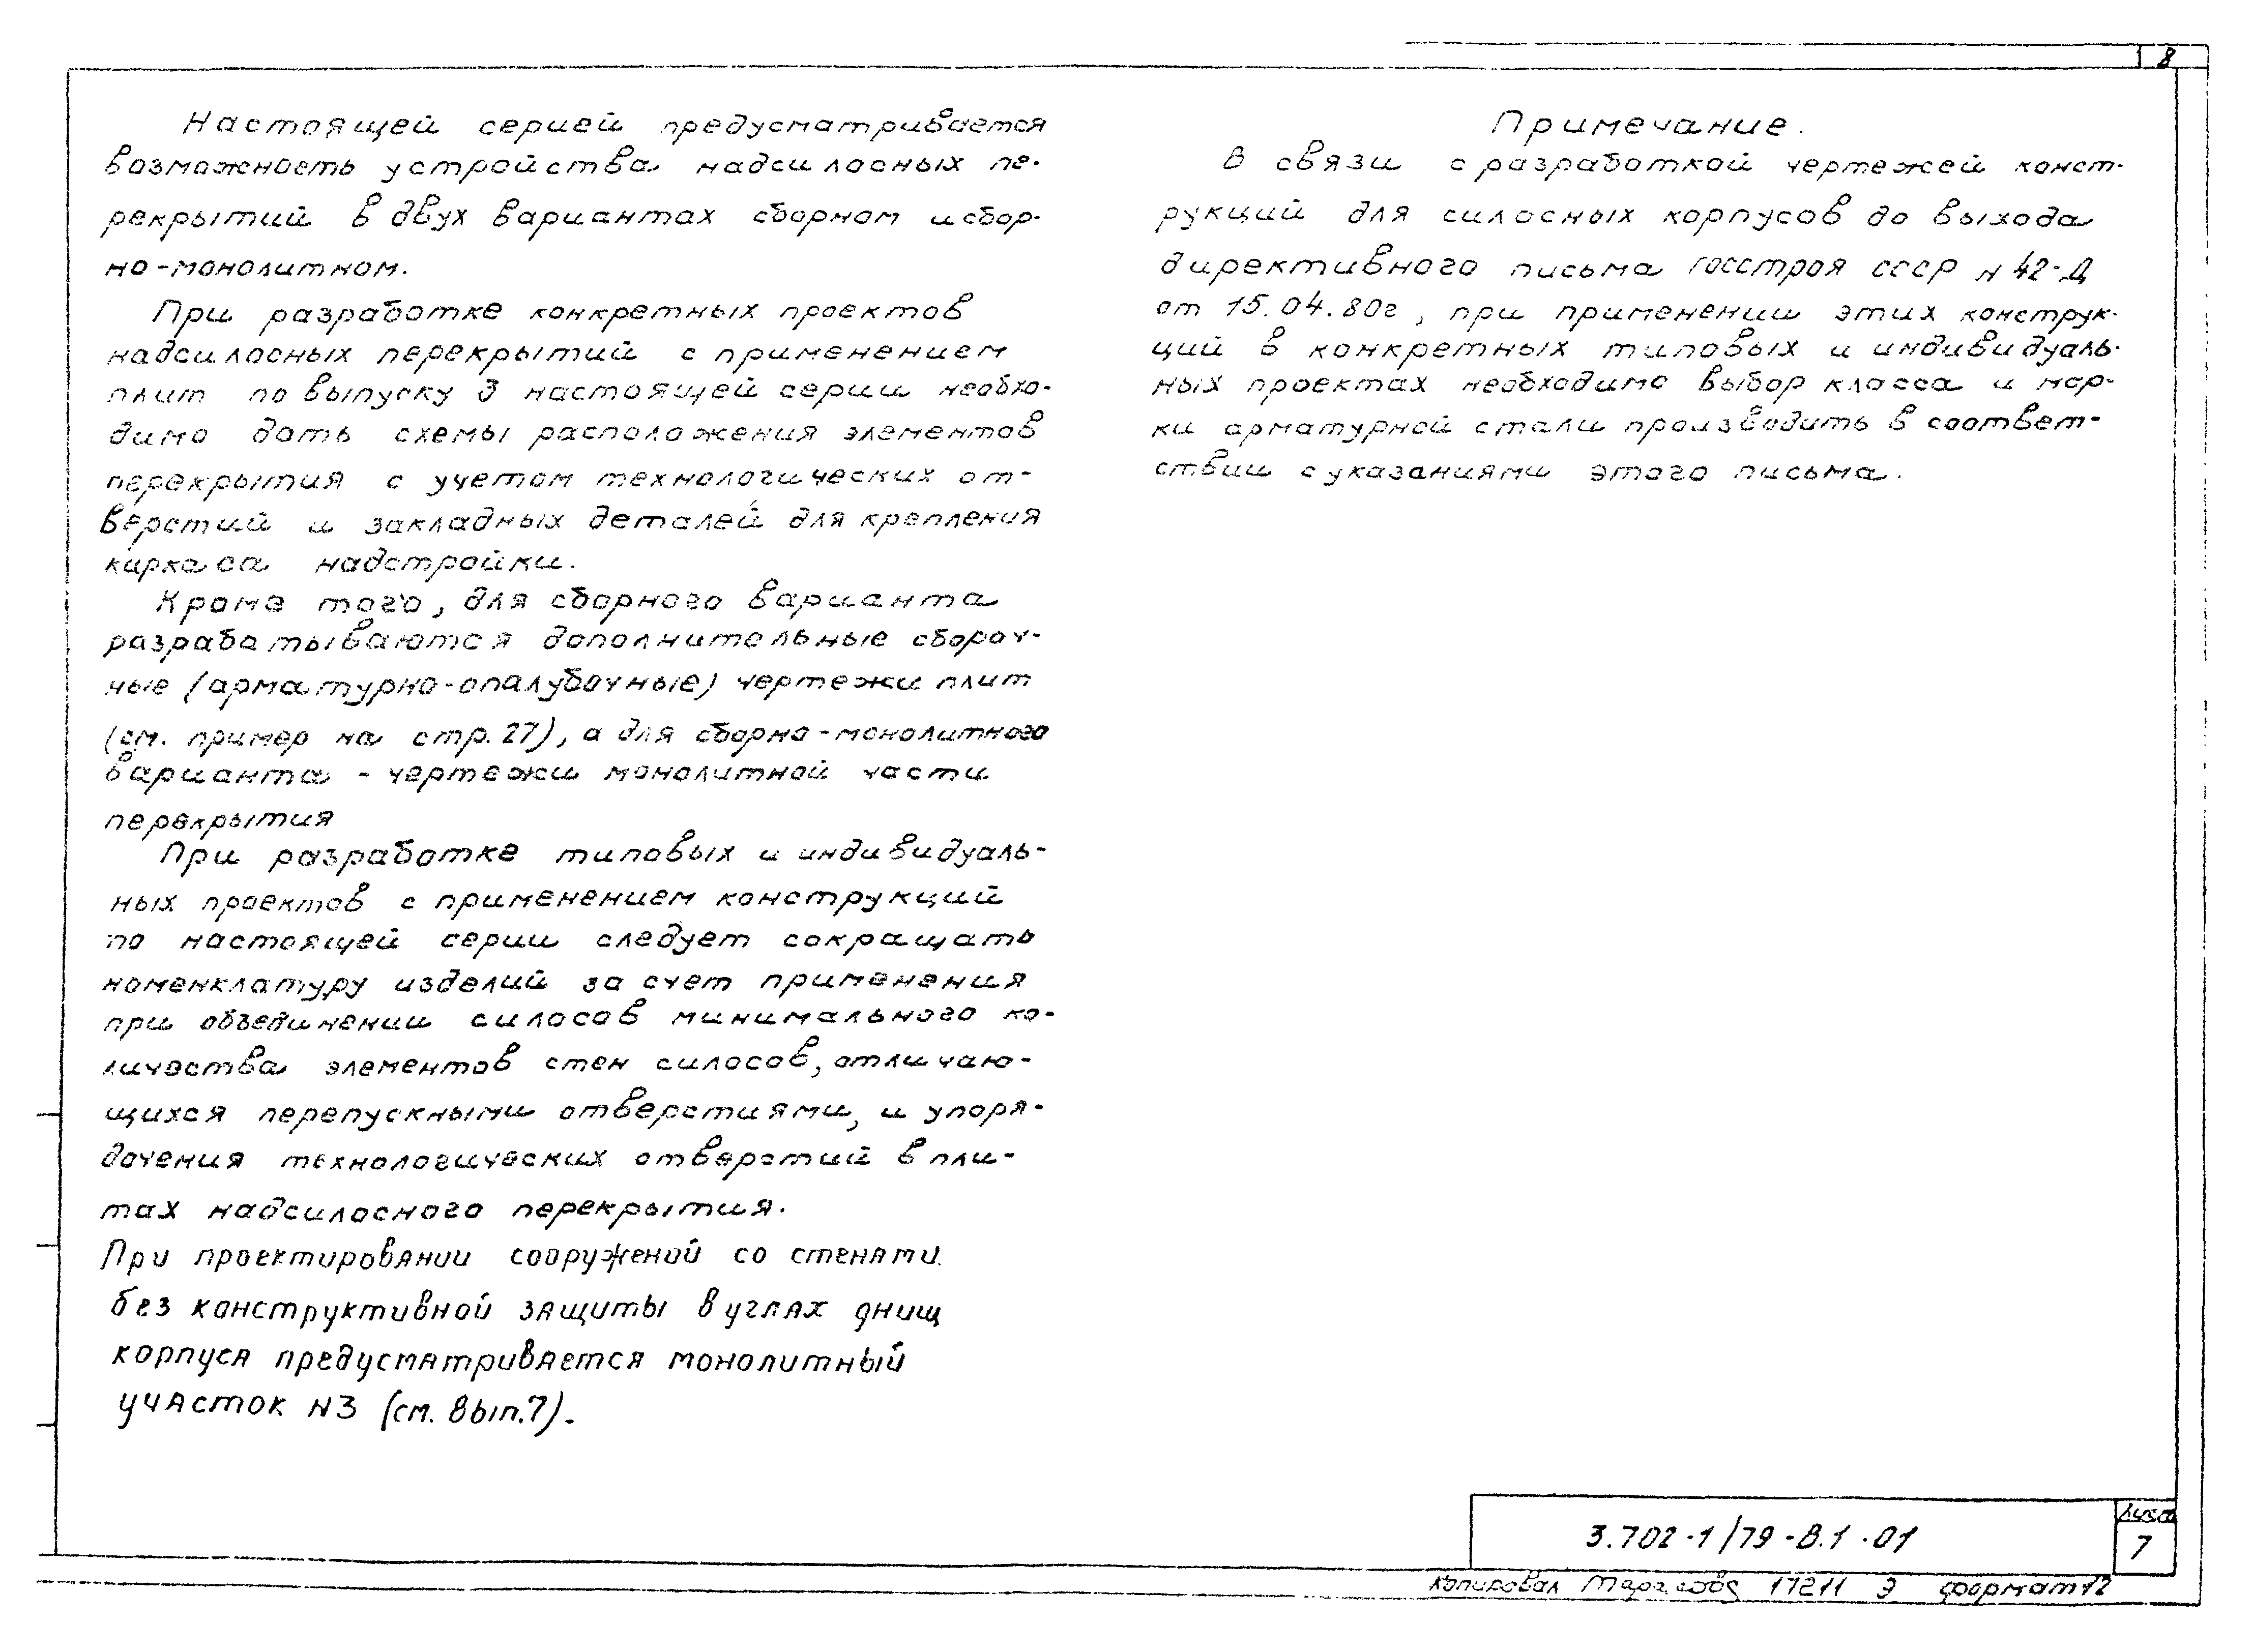 8
Настоящей серией предусматривается
возможность устройства надсилосных пе-
рекрытий в двух вариантах сборном и сбор-
но-монолитном.
При разработке конкретных проектов
надсилосных перекрытий с применением
плит по выпуску 3 настоящей серии необхо-
димо дать схемы расположения элементов
перекрытия с учетом технологических от-
верстий и закладных деталей для крепления
каркаса надстройки.
Кроме того, для сборного варианта
разрабатываются дополнительные сбороч-
ные (арматурно-опалубочные) чертежи плит
(см. пример на стр. 27), а для сборно-монолитного
варианта - чертежи монолитной части
перекрытия
При разработке типовых и индивидуаль-
ных проектов с применением конструкций
по настоящей серии следует сокращать
номенклатуру изделий за счет применения
при объединении силосов минимального ко-
личества элементов стен силосов, отличаю-
щихся перепускными отверстиями, и упоря-
дочения технологических отверстий в пли-
тах надсилосного перекрытия.
При проектировании сооружений со стенами
без конструктивной защиты в углах днищ
корпуса предусматривается монолитный
участок N3 (см. Вып.7).
Примечание.
В связи с разработкой чертежей конст-
рукций для силосных корпусов до выхода
директивного письма Госстроя СССР N 42-Д
от 15.04.80г, при применении этих конструк-
ций в конкретных типовых и индивидуаль-
ных проектах необходимо выбор класса и мар-
ки арматурной стали производить в соответ-
ствии с указаниями этого письма.
3.702-1/79-В.1-01
Лист
7
Копировал 17211 Э формат 12